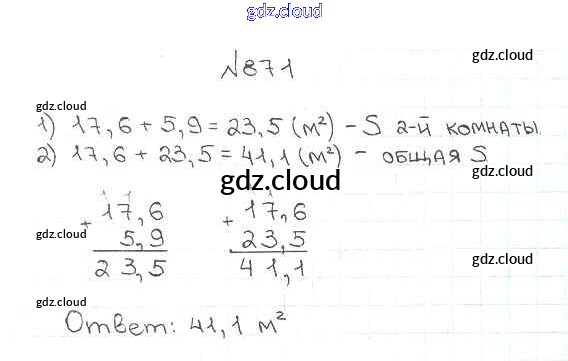 gdz.cloud
№871
gdz.cloud
gdz.cloud
1) 17,6 + 5,9 = 23,5 (м²) - S 2-й комнаты.
2) 17,6 + 23,5 = 41,1 (м²) - общая S
gdz.cloud
gdz.cloud
17,6 17,6
+ +
gdz.cloud 5,9 23,5 gdz.cloud
23,5 41,1
gdz.cloud
gdz.cloud
Ответ: 41,1 м²